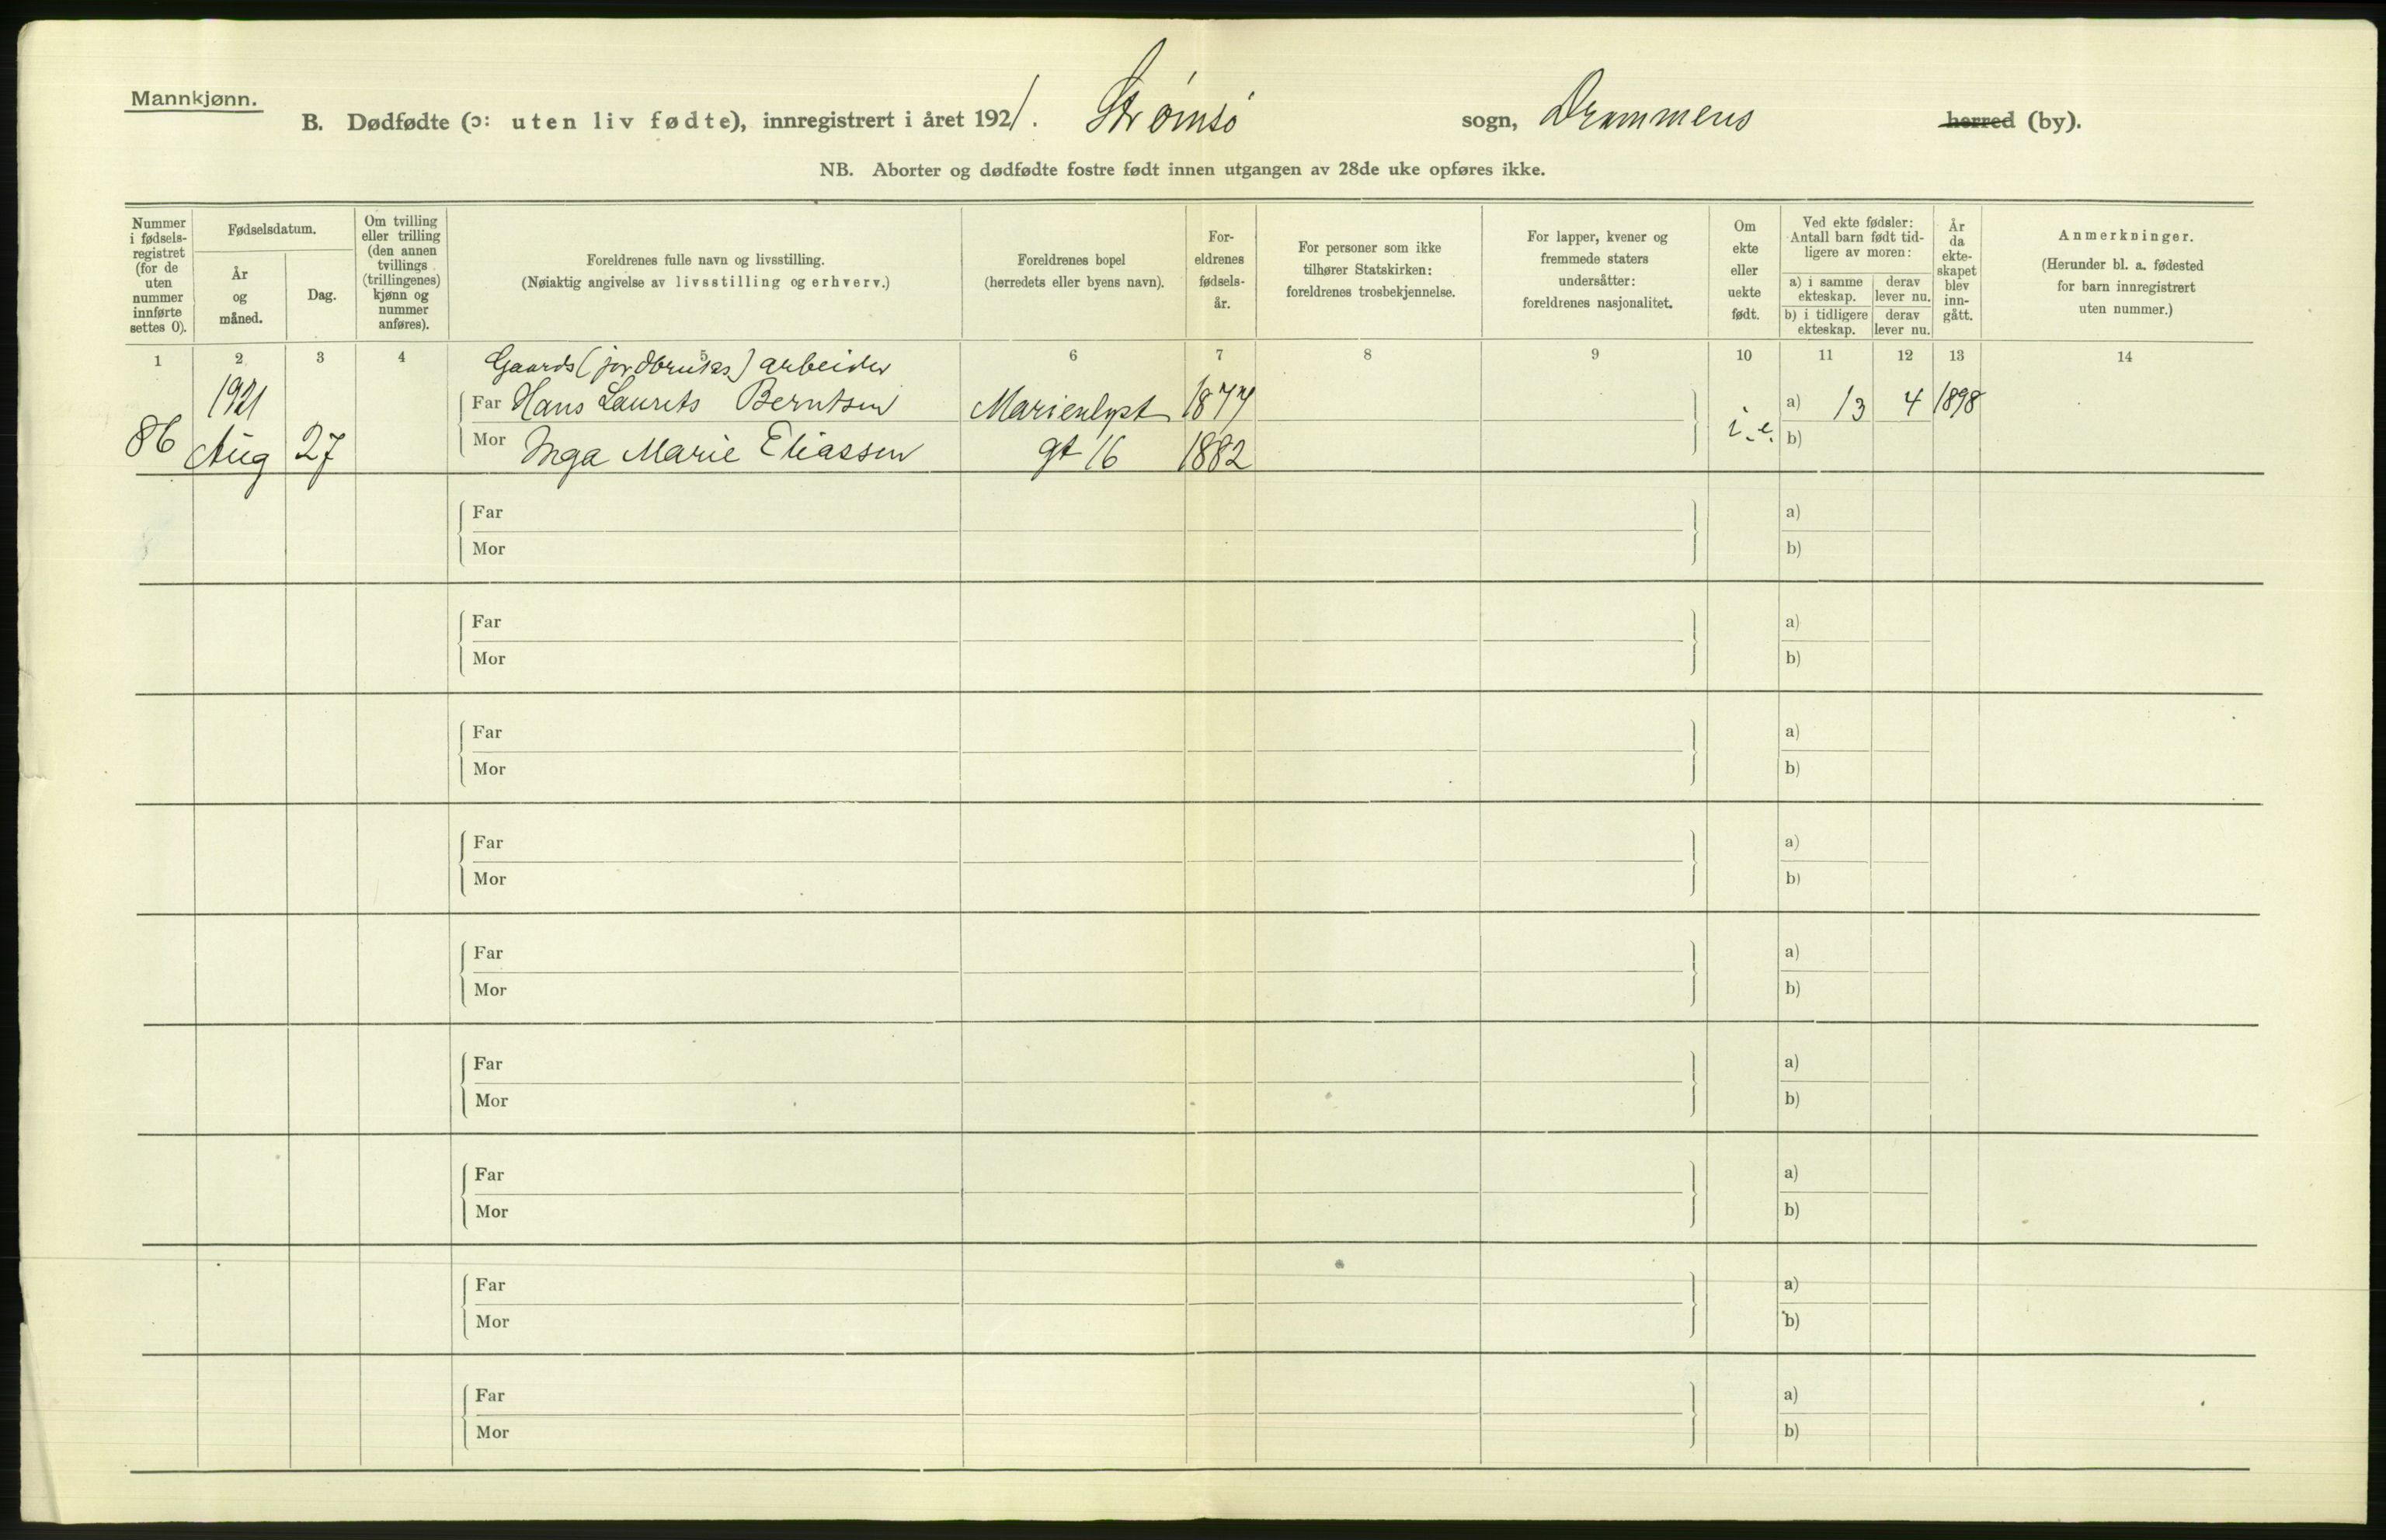 Mannkjønn.
B. Dødfødte (ɔ: uten liv fødte), innregistrert i året 1921. Strømsø sogn, Drammens herred (by).
NB. Aborter og dødfødte fostre født innen utgangen av 28de uke opføres ikke.
Nummer i fødsels-registret (for de uten nummer innførte settes 0).
Fødselsdatum.
År og måned.
Dag.
Om tvilling eller trilling (den annen tvillings (trillingenes) kjønn og nummer anføres).
Foreldrenes fulle navn og livsstilling.
(Nøiaktig angivelse av livsstilling og erhverv.)
Foreldrenes bopel
(herredets eller byens navn).
For-eldrenes fødsels-år.
For personer som ikke tilhører Statskirken: foreldrenes trosbekjennelse.
For lapper, kvener og fremmede staters undersåtter: foreldrenes nasjonalitet.
Om ekte eller uekte født.
Ved ekte fødsler: Antall barn født tid-ligere av moren:
a) i samme ekteskap.
derav lever nu.
b) i tidligere ekteskap.
derav lever nu.
År da ekte-skapet blev inn-gått.
Anmerkninger.
(Herunder bl. a. fødested for barn innregistrert uten nummer.)
1 2 3 4 5 6 7 8 9 10 11 12 13 14
Gaards (jordbruks) arbeider
1921 Far Hans Laurits Berntsen Marienlyst 1877 a) 13 4 1898
86 Aug 27 Mor Inga Marie Eliassen gt 16 1882 i.e. b)
Far a)
Mor b)
Far a)
Mor b)
Far a)
Mor b)
Far a)
Mor b)
Far a)
Mor b)
Far a)
Mor b)
Far a)
Mor b)
Far a)
Mor b)
Far a)
Mor b)